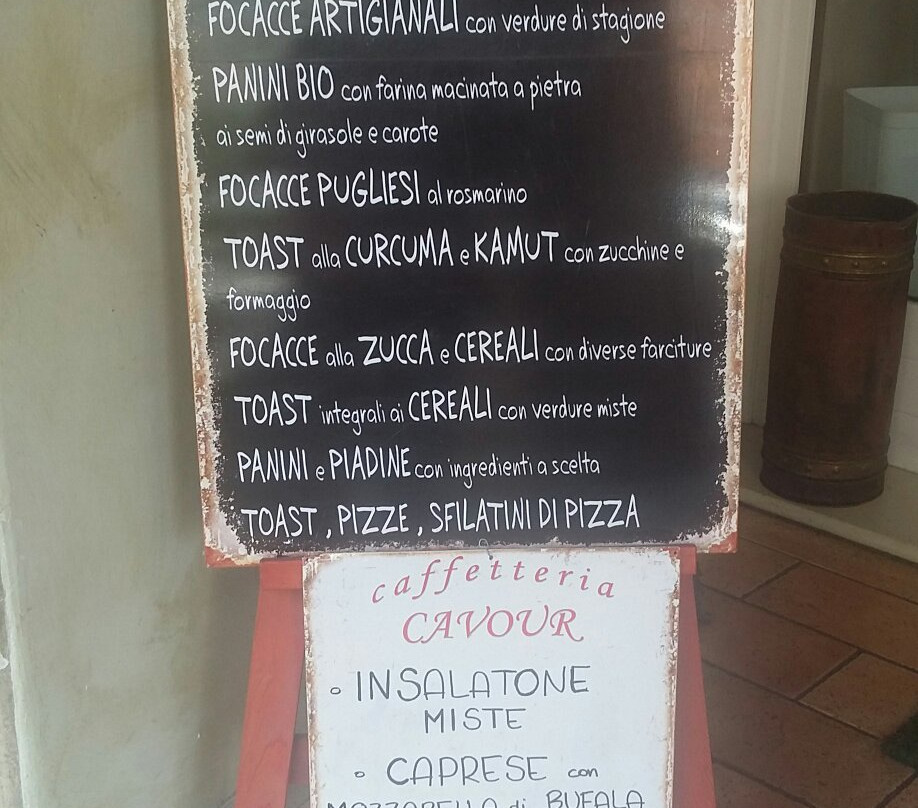 FOCACCE ARTIGIANALI con verdure di stagione
PANINI BIO con farina macinata a pietra
ai semi di girasole e carote
FOCACCE PUGLIESI al rosmarino
TOAST alla CURCUMA e KAMUT con zucchine e
formaggio
FOCACCE alla ZUCCA e CEREALI con diverse farciture
TOAST integrali ai CEREALI con verdure miste
PANINI e PIADINE con ingredienti a scelta
TOAST , PIZZE , SFILATINI DI PIZZA
caffetteria
CAVOUR
◦ INSALATONE
MISTE
◦ CAPRESE con
MOZZARELLA di BUFALA